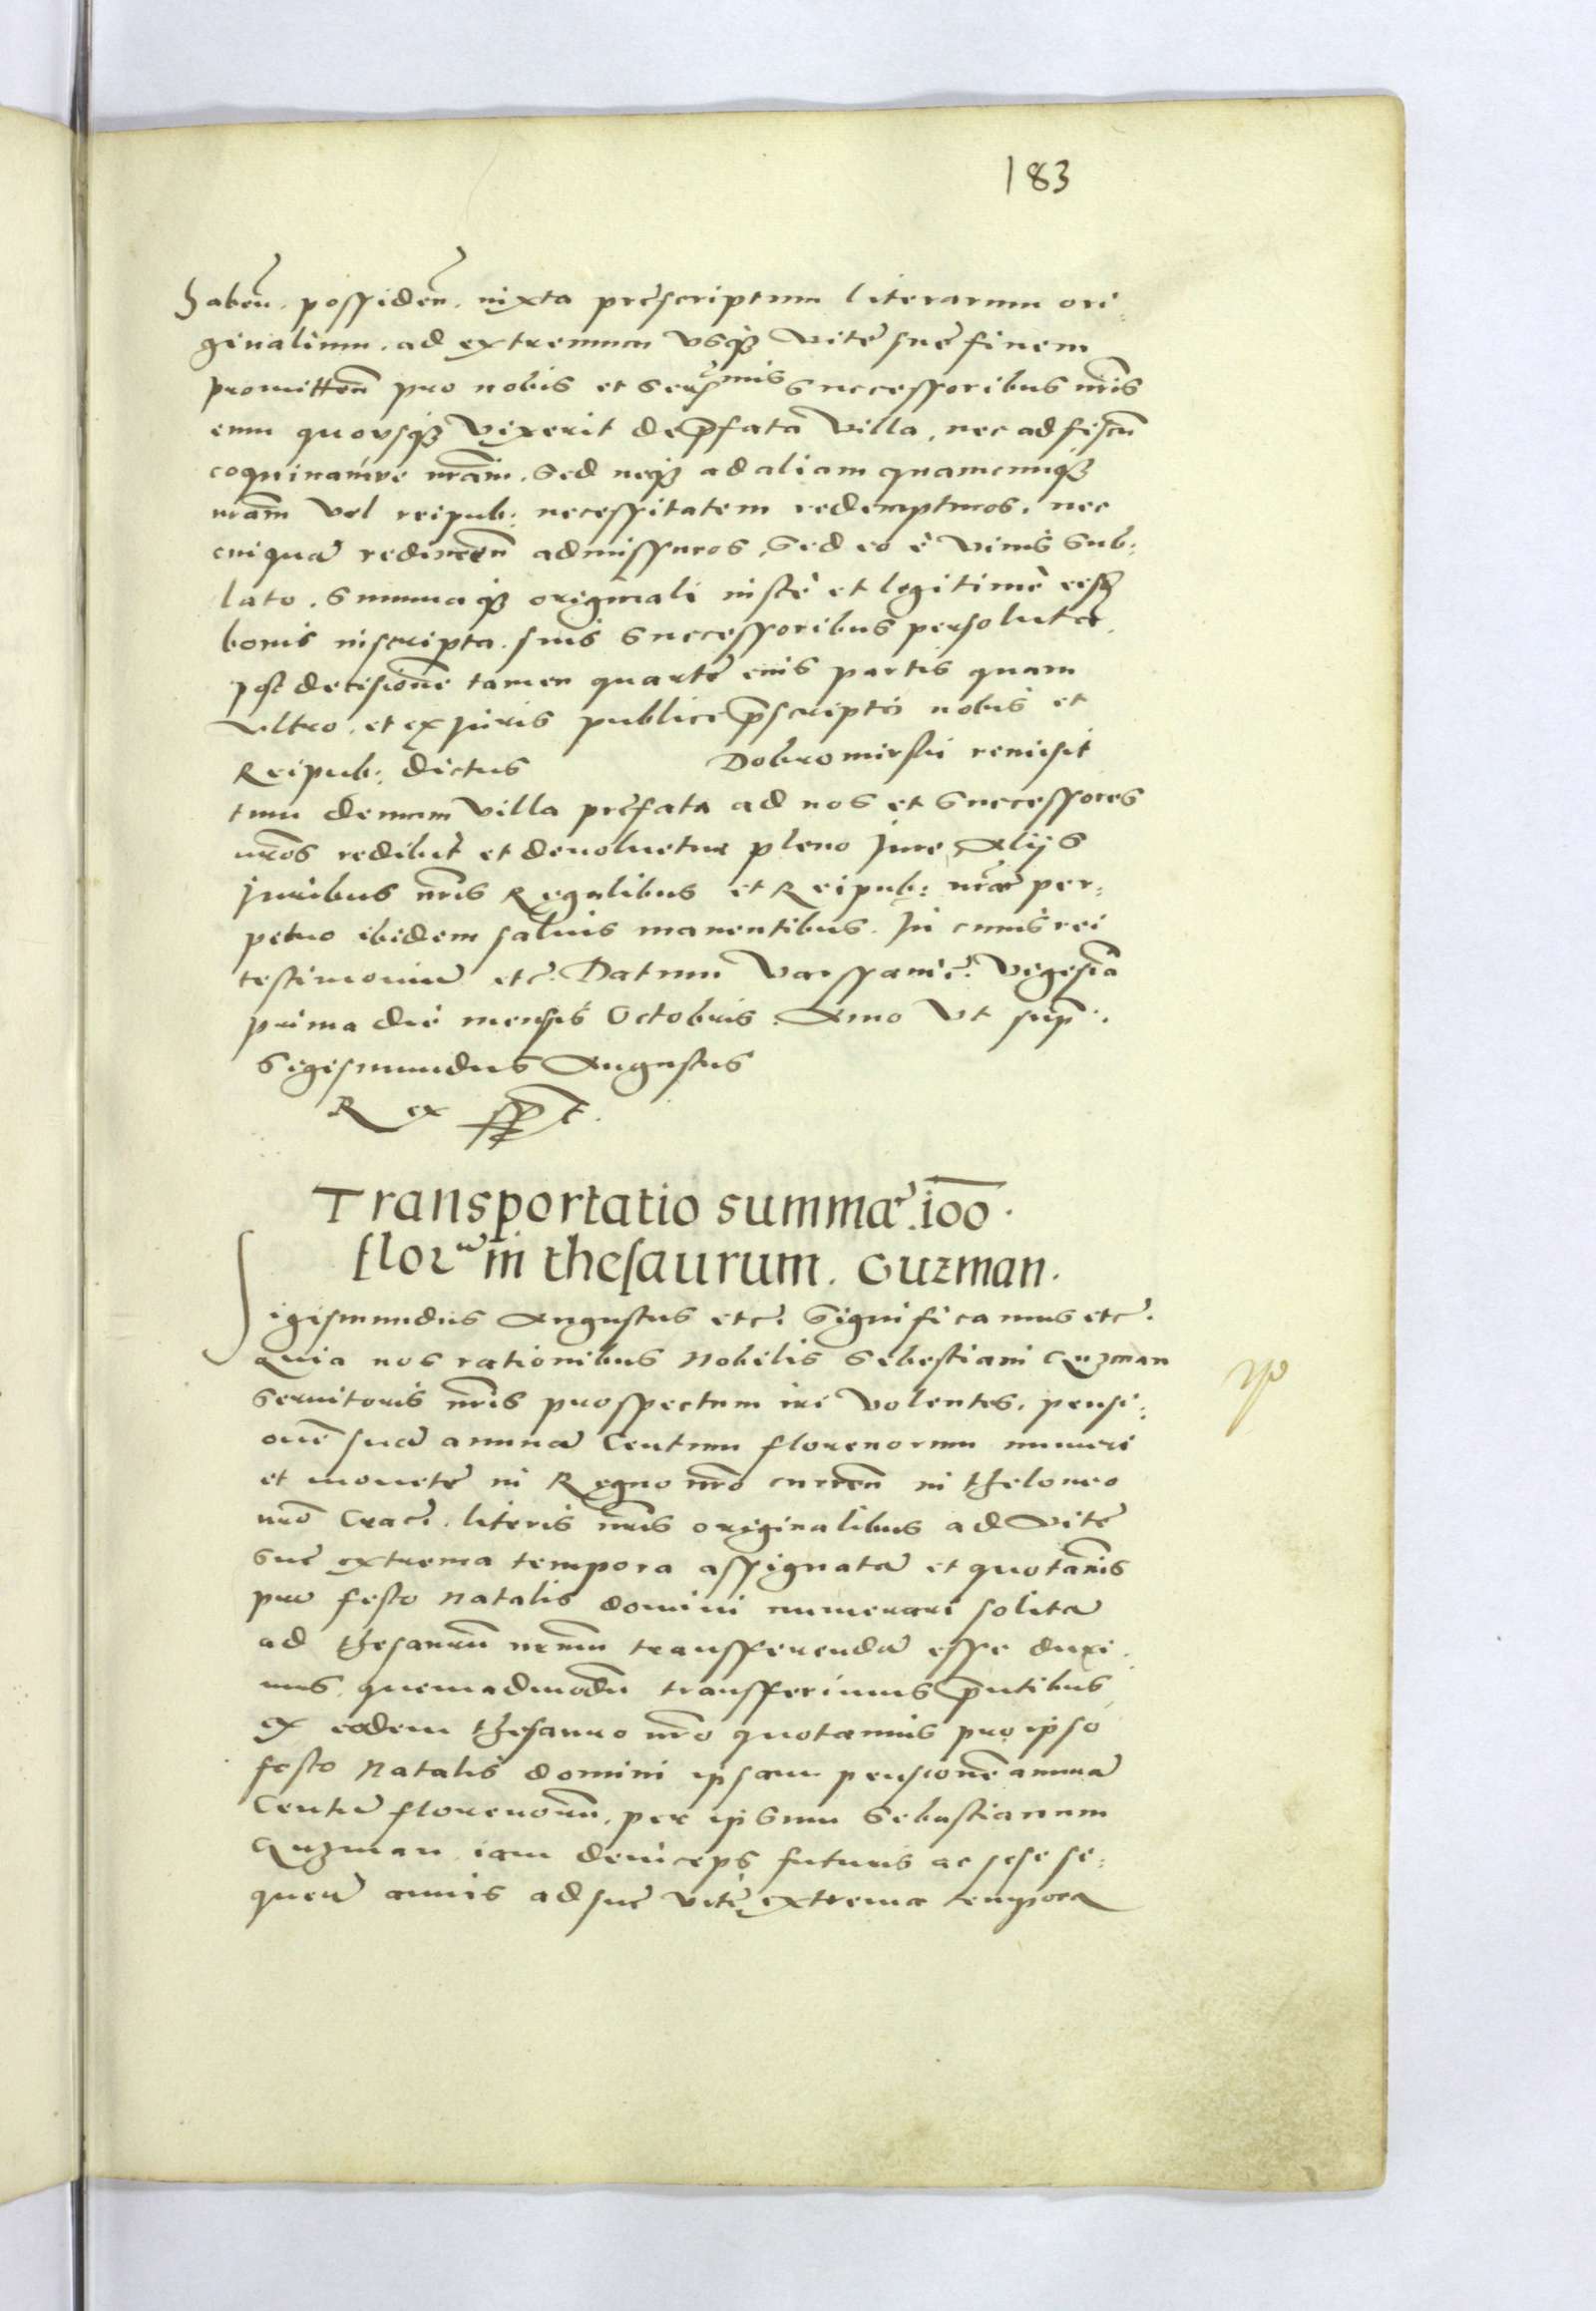 183
habeñ. possideñ. iuxta prescriptum literarum ori:
ginalium. ad extremum vsqȝ vite sue finem
promitteñ pro nobis et serᵐⁱˢ successoribus nr̃is
eum quousqȝ vixerit de p̄fata villa, nec ad fiscũ
coquinamve nr̃am. sed neqȝ ad aliam quamcunqȝ
nr̃am vel reipub: necessitatem redempturos. nec
cuiquã redimeñ admissuros, sed eo è viuis sub:
lato. summaqȝ originali iustè et legitimè eisd̃
bonis inscripta. suis successoribus persoluta,
post decisionẽ tamen quarte eius partis quam
vltro, et ex iuris publici p̄scripto nobis et
Reipub: dictus Dobromirski remisit
tum demum villa prefata ad nos et successores
nr̃os redibit et deuoluetur pleno Jure, Alijs
Juribus nr̃is Regalibus et Reipub: nr̃ae per:
petuo ibidem saluis manentibus. In cuius rei
testimoniũ etc̃. Datum Varssauie. vigesiã
prima die mensis Octobris. Anno vt sup̃.
Sigismundus Augustus
Rex sspt.
Transportatio summæ .100.
florũ in thesaurum. Guzman.
Sigismundus Augustus etc̃. Significamus etc̃.
Quia nos rationibus Nobilis Sebestiani Guzman
seruitoris nr̃is prospectum iri volentes. pensi:
onẽ suã annuã Centum florenorum numeri
et monete in Regno nr̃o curreñ in theloneo
nr̃o Crac̃. literis nr̃is originalibus ad vite
sue extrema tempora assignatã et quotannis
pro festo Natalis domini numerari solitã
ad thesaurũ nr̃um transfferendã esse duxi:
mus, quemadmodũ transfferimus p̄ntibus,
ex eodem thesauro nr̃o quotannis pro ipso
festo Natalis domini ipsam pensionẽ annuã
Centũ florenorũ, per ipsum Sebastianum
Guzman iam deinceps futuris ac sese se:
queñ annis ad sue vite extrema tempora